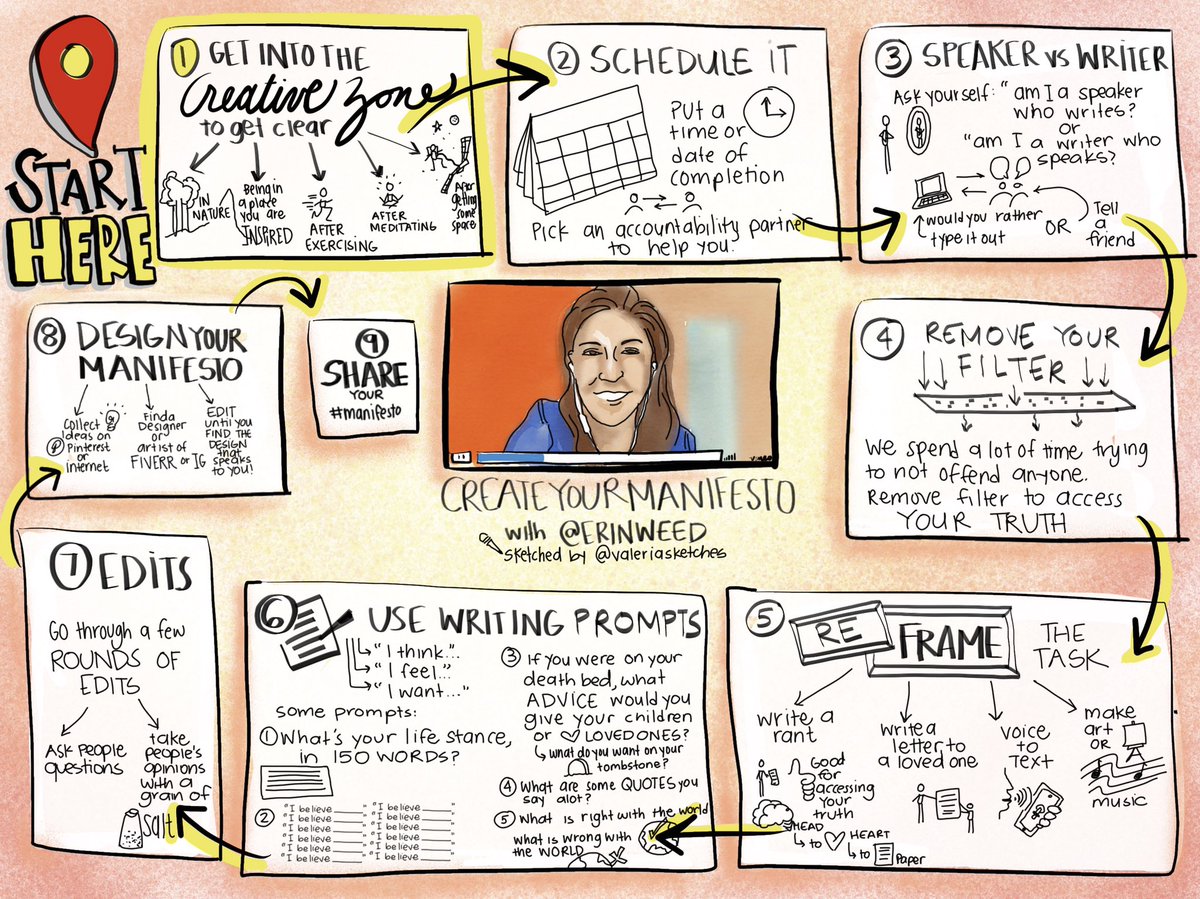 START
HERE
1 GET INTO THE
Creative Zone
to get clear
IN
NATURE
Being in
a place
you are
INSPIRED
AFTER
EXERCISING
AFTER
MEDITATING
After
getting
some
space
2 SCHEDULE IT
Put a
time or
date of
completion
Pick an accountability partner
to help you.
3 SPEAKER vs WRITER
Ask yourself: "am I a speaker
who writes?
or
"am I a writer who
speaks?
would you rather
type it out
OR
Tell
a
friend
4 REMOVE YOUR
FILTER
We spend a lot of time trying
to not offend anyone.
Remove filter to access
YOUR TRUTH
5 RE FRAME THE
TASK
write a
rant
Good
for
accessing
your
truth
HEAD
to HEART
to Paper
write a
letter to
a loved one
voice
to
Text
make
art
OR
music
6 USE WRITING PROMPTS
"I think..."
"I feel..."
"I want..."
Some prompts:
1 What's your life stance,
in 150 WORDS?
2
"I believe ____" "I believe ____"
"I believe ____" "I believe ____"
"I believe ____" "I believe ____"
"I believe ____" "I believe ____"
"I believe ____" "I believe ____"
"I believe ____" "I believe ____"
3 If you were on your
death bed, what
ADVICE would you
give your children
or LOVED ONES?
what do you want on your
tombstone?
4 What are some QUOTES you
say alot?
5 What is right with the world
What is wrong with
the WORLD
7 EDITS
Go through a few
ROUNDS OF
EDITS
ASK PEOPLE
questions
take
people's
opinions
with a
grain of
salt
8 DESIGN YOUR
MANIFESTO
Collect
ideas on
Pinterest
or
internet
Find a
Designer
or
artist of
FIVERR or IG
EDIT
until you
FIND THE
DESIGN
that
speaks
to you!
9
SHARE
YOUR
#manifesto
CREATE YOUR MANIFESTO
with @ERINWEED
sketched by @valeriasketches